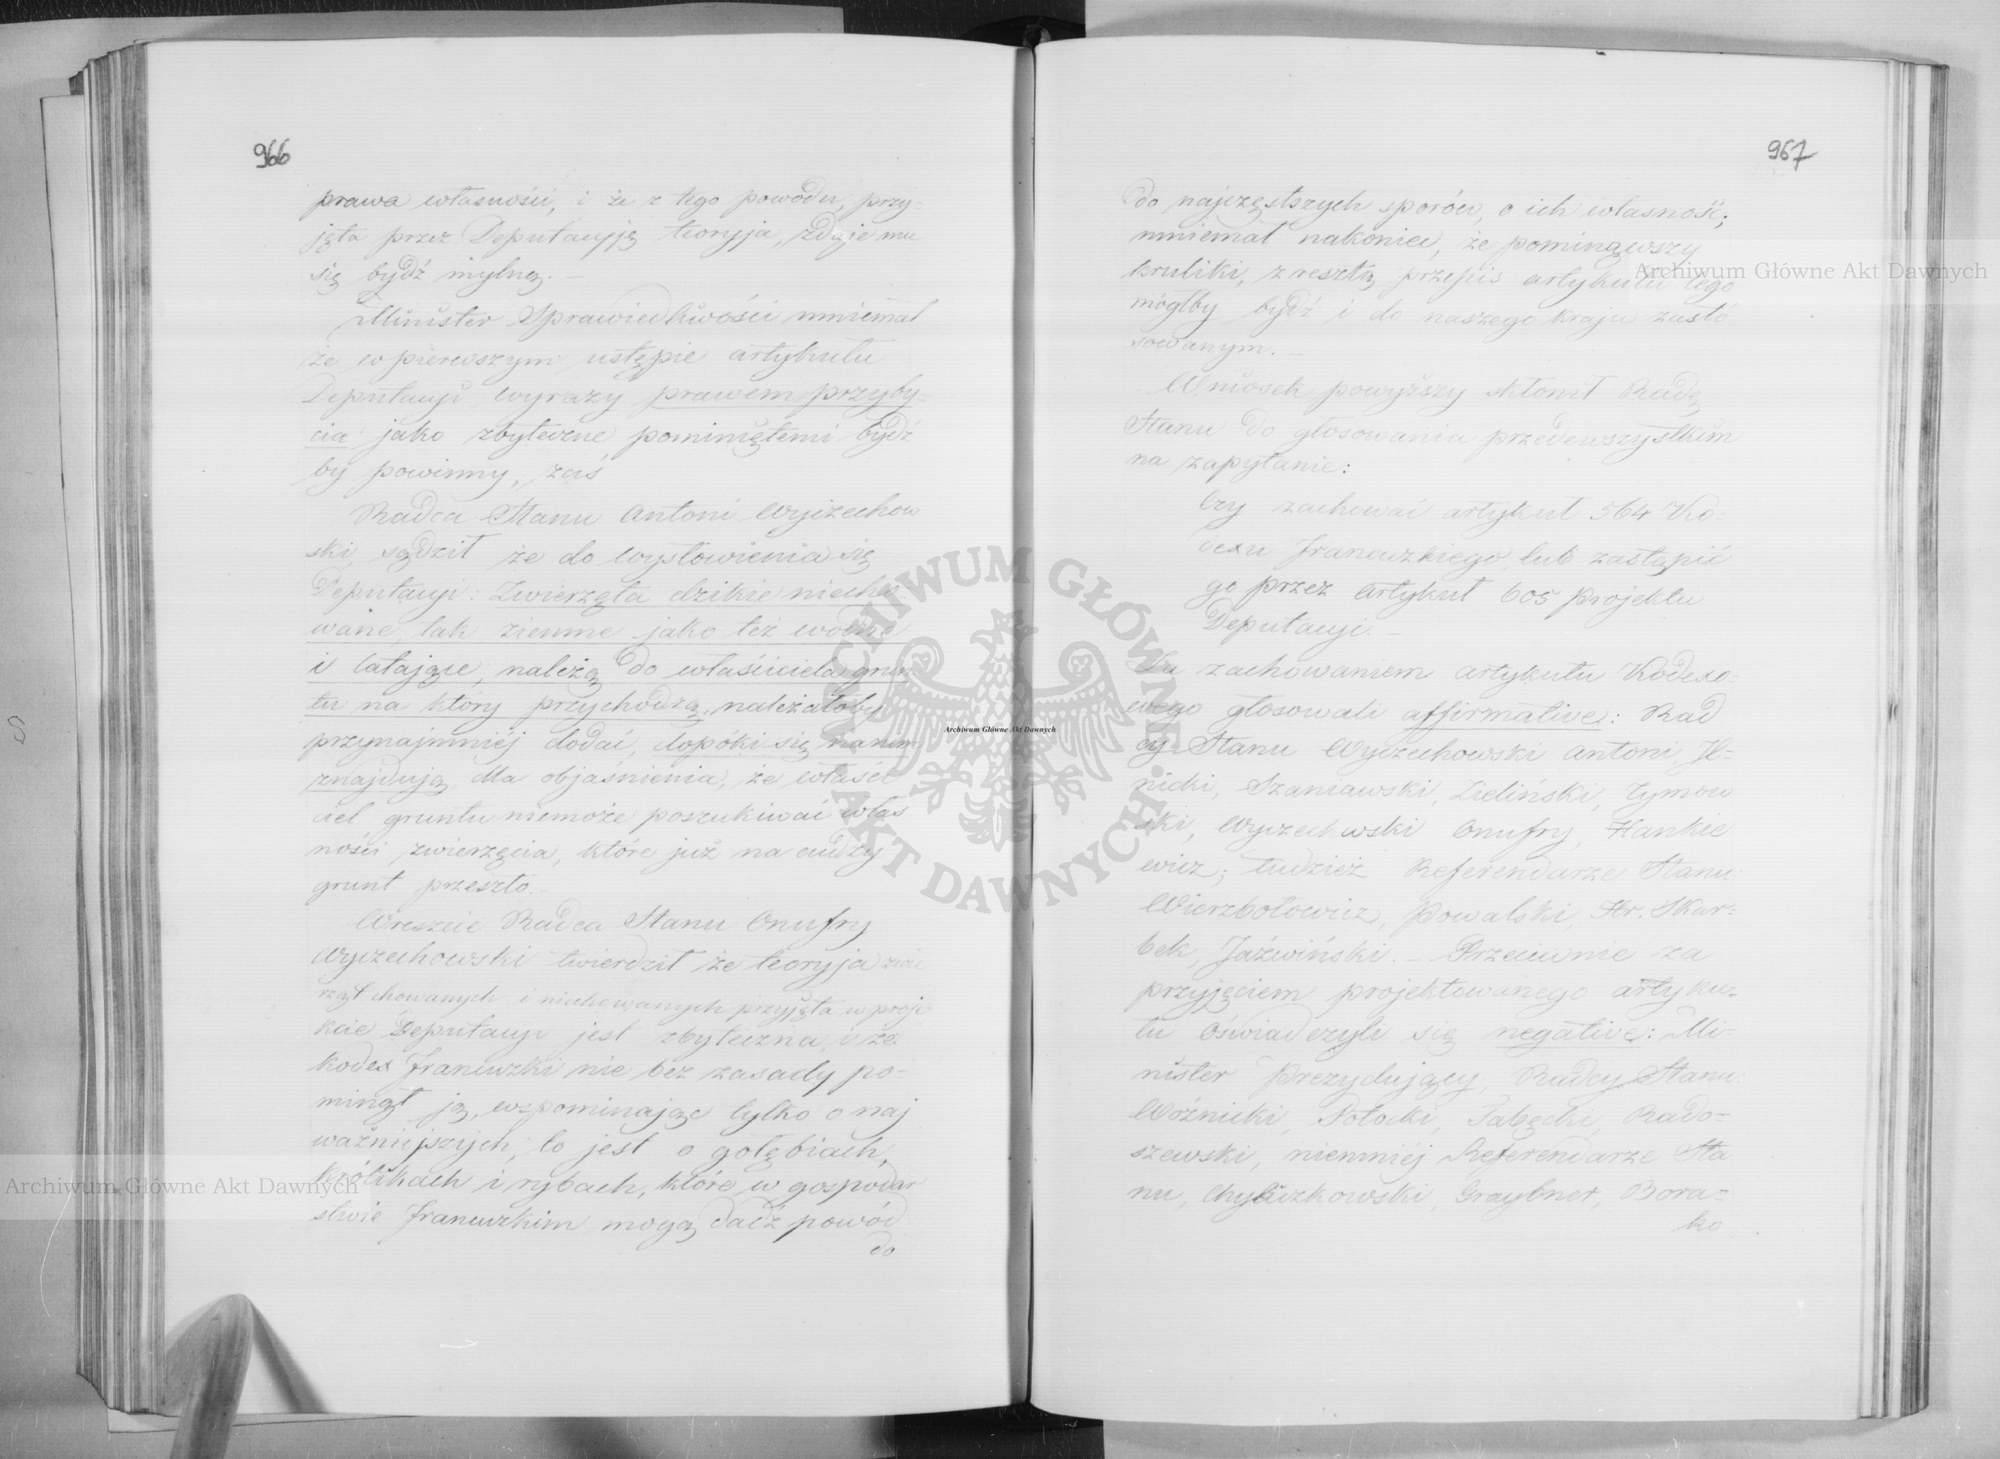 966
prawa własności, i że z tego powodu, przy=
jęta przez Deputacyją teoryja, zdaje mu
się bydź mylną. —
Minister Sprawiedliwości mniemał
że w pierwszym ustępie artykułu
Deputacyi wyrazy prawem przyby=
cia jako zbyteczne pominiętemi bydź
by powinny, zaś
Radca Stanu Antoni Wyczechow
ski, sądził że do wysłowienia się
Deputacyi: Zwierzęta dzikie niecho
wane, tak ziemne jako też wodne
i latające, należą do właściciela grun
tu na który przychodzą, należałoby
przynajmniéj dodać, dopóki się na nim
znajdują, dla objaśnienia, że właści
ciel gruntu niemoże poszukiwać włas
ności zwierzęcia, które już na cudzy
grunt przeszło. —
Wreszcie Radca Stanu Onufry
Wyczechowski twierdził że teoryja zwie
rząt chowanych i niechowanych przyjęta w proje
kcie Deputacyi jest zbyteczna, i że
Kodex Francuzki nie bez zasady po=
minął ją, wspominając tylko o naj
ważniejszych, to jest o gołębiach,
królikach i rybach, które w gospodar
stwie francuzkim mogą dadź powód
do
967
do najczęstszych sporów, o ich własność;
mniemał nakoniec, że pominąwszy
kruliki, zresztą przepis artykułu tego
mógłby bydź i do naszego kraju zasto
sowanym. —
Wniosek powyższy skłonił Radę
Stanu do głosowania przedewszystkim
na zapytanie:
Czy zachować artykuł 564 Ko=
dexu francuzkiego, lub zastąpić
go przez artykuł 605 projektu
Deputacyi. —
Za zachowaniem artykułu Kodexo=
wego głosowali affirmative: Rad
cy Stanu Wyczechowski Antoni,
nicki, Szaniawski, Zieliński, Tymow
ski, Wyczechowski Onufry, Hankie
wicz; tudzież Referendarze Stanu
Wierzbołowicz, Powalski, Hr. Skar=
bek, Jaźwiński. — Przeciwnie za
przyjęciem projektowanego artyku=
łu oświadczyli się negative: Mi=
nister Prezydujący, Radcy Stanu
Woźnicki, Potocki, Rado=
szewski, niemniéj Referendarze Sta
nu, Graybner, Bora=
ko
Archiwum Główne Akt Dawnych
Archiwum Główne Akt Dawnych
Archiwum Główne Akt Dawnych
ARCHIWUM GŁÓWNE
AKT DAWNYCH